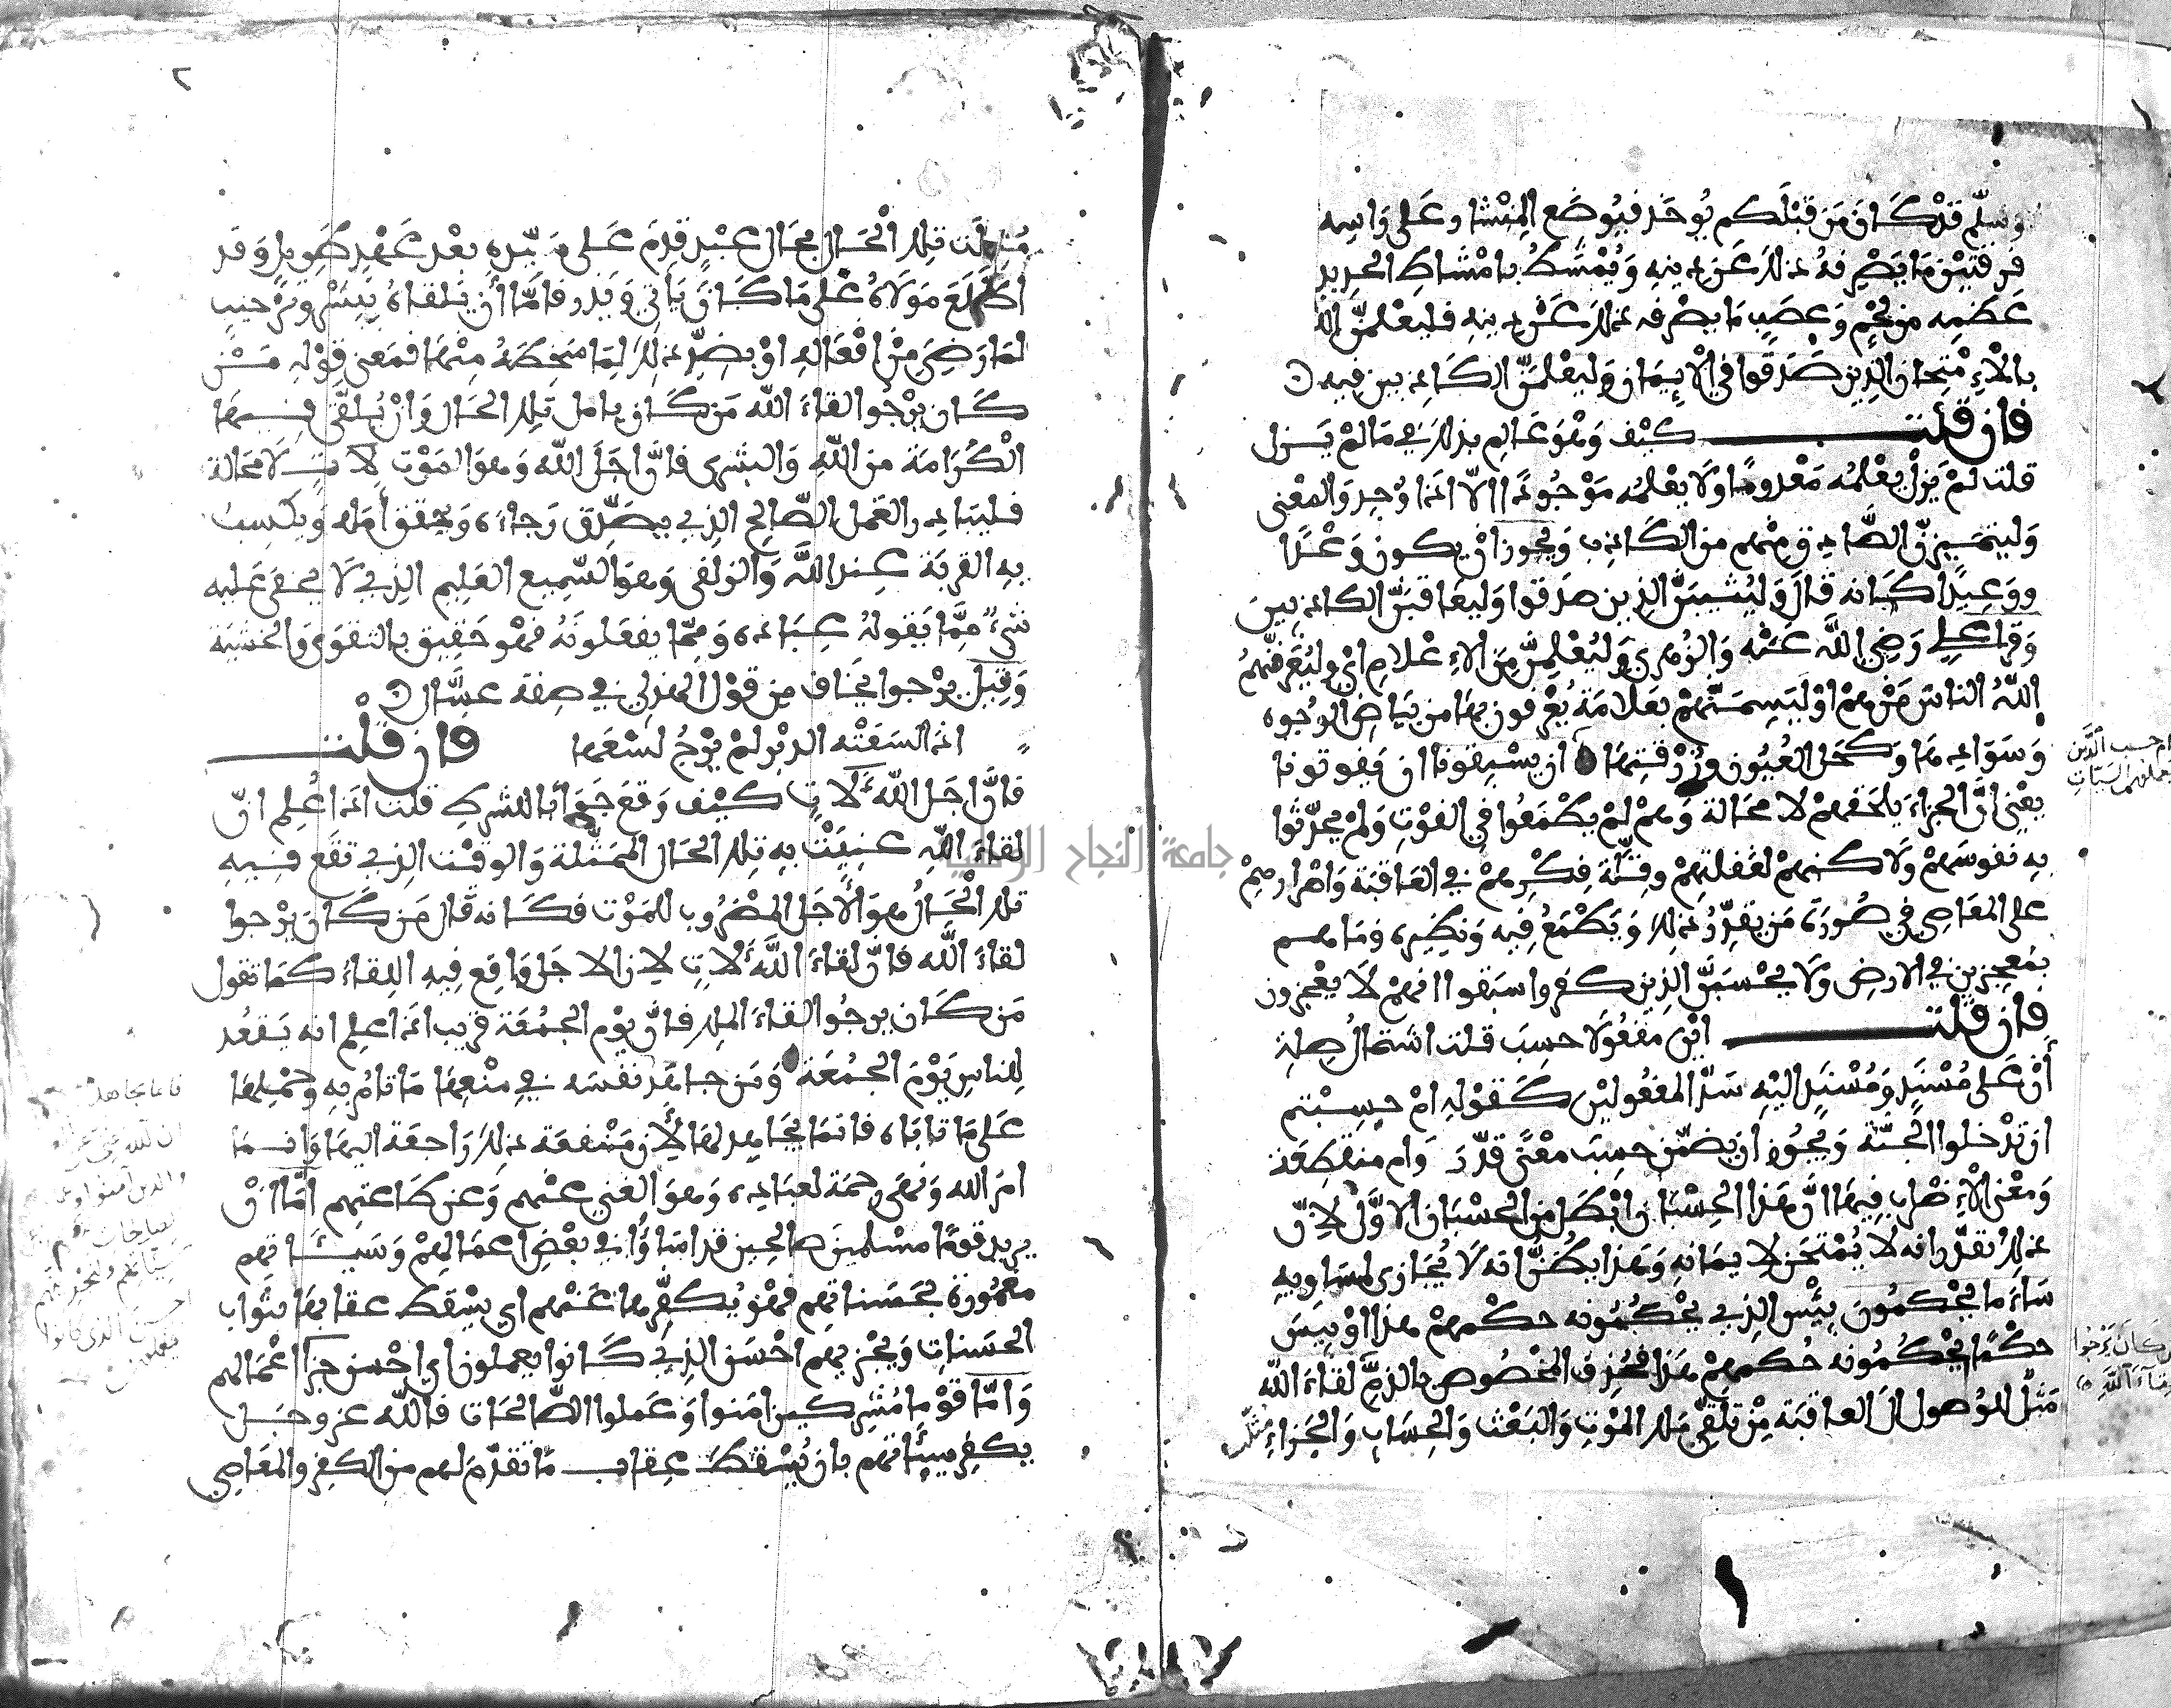 وسلّم قدْ كَان مَن قَبْلَكم يُوخَذ فيُوضَع المِنْشار عَلى رَاسِه
فرقتين مَا يَصْرِفهُ ذلكَ عَن دينِه وَيُمْشَطُ بامْشاطِ الحديد
عَظمِه من لحْمٍ وَعصَبٍ مَا يصْرفه ذلكَ عَنْ دينِه فليَعْلمنّ الله
بالاِمْتِحان الذِين صَدَقوا في الاِيمَان وَليَعْلمَنّ الكاذبين فيه
فان قلت كيْف وَهوَ عَالِم بذلكَ في مَا لمْ يَزل
قلت لمْ يَزلْ يعْلمُه مَعْدومًا وَلا يعْلمُه مَوْجُودًا الّا اذا وُجِد وَالمعْنى
وَليتميزنّ الصَّادق منْهم من الكَاذب وَيجوز انْ يكون وَعْدًا
ووَعِيدًا كَانه قالَ وَليُثيبَنّ الذِين صدَقوا وَليعَاقبَنّ الكاذبينَ
وَقرا عَلي رَضِيَ اللّه عَنْه وَالزهري وَليُعْلِمَنّ مِنَ الاِعْلامِ ايْ وليُعَرفنّهمُ
اللّهُ الناسَ مَنْ همْ اوْ ليَسِمَنّهمْ بعَلامَة يُعْرفون بهَا من بَيَاض الوُجوه
وَسَوَادهَا وَكحَل العُيُون وزُرْقتِهَا ان يسْبِقونا ان يَفوتونا
يعْني انّ الجزاءَ يلحَقهمْ لا محَالة وَهمْ لمْ يطْمَعُوا في الفوْتِ وَلمْ يحدّثوا
بِه نفوسَهمْ وَلاكنهمْ لغفلتِهمْ وقلّة فِكْرهمْ في العَاقبَة وَاصْرارهِمْ
على المعَاصِي في صُورَة مَن يقدّرُ ذلكَ وَيَطْمَعُ فِيه وَنظِيره وَمَا هم
بمُعجِزين في الارضِ وَلا يحْسَبَنّ الذِين كفروا سبَقوا انهمْ لا يعْجزون
فان قلت ايْن مفعُولا حسِبَ قلت اشتمَالُ صِلة
أنْ عَلى مُسْنَدٍ وَمُسْنَدٍ اليْهِ سَدّ المفعُوليْن كقوْلِه امْ حسِبْتم
ان تدْخلوا الجنّة وَيجُوز ان يضمّن حسِبَ معْنَى قدّرَ وَام منقطِعَة
وَمعْنى الاِضْراب فيهَا انّ هَذا الحِسْبَان ابْطل من الحسْبَان الاوّل لانّ
ذلكَ يقدّر انه لا يُمْتحَن لايمَانِه وَهَذا يظُنُّ انه لا يُجَازى لمسَاوِيه
سَاءَ مَا يحْكمُونَ بئْس الذِي يحْكمُونه حكْمهمْ هذا اوْ بيسَ
حكْمًا يحْكمُونه حُكمهمْ هَذا فحُذِف المخْصُوص بالذمّ لقاءَ اللّه
مَثلٌ للوُصول الى العاقبَة مِنْ تلقّي مَلك الموْتِ وَالبَعْث وَالحِسَابِ وَالجَزاءِ
مثلت
ام حسب الَّذين
يعملون السيّئات
من كَانَ يَرْجُوا
لِقآءَ اللَّهِ
٢
مُثلت تِلكَ الحَال بحَال عبْدٍ قدِمَ عَلى سَيّدِه بعْد عَهْدٍ طَوِيلٍ وَقد
اطّلَعَ مَوْلاهُ عَلى مَا كَانَ يَاتي وَيَذر فامّا أن يَلقاهُ ببَشْرٍ وترْحيب
لمَا رَضِيَ مِنْ افْعَالِهِ اوْ بضِدّ ذلِكَ لِمَا سَخِطَهُ مِنْهَا فمَعنى قوْلِه مَنْ
كَان يرْجوا لقاءَ اللّه مَن كَان يامل تِلكَ الحَال وَانْ يُلقّى فيهَا
الْكرَامَة من اللّهِ وَالبشرى فانّ اجَلَ اللّه وَهوَ المَوْت لآتٍ لا محَالة
فليبَادر العَمل الصَّالِح الذِي يصَدِّق رَجاءَه وَيحَقق أمَله وَيكسِبُ
بِهِ القربَة عِند اللَّه وَالزلفى وَهوَ السّمِيع العَلِيم الذِي لا يخفى عَليه
شيءٌ مِمَّا يَقولهُ عِبَاده وَمِمّا يفعَلونَهُ فهْو حَقِيق بالتقوَى وَالخشيَة
وَقِيل يرْجوا يخَاف مِن قوْل الهذلي في صِفة عسَّال
اذا لسَعَتْه الدبْر لمْ يَرْجُ لسْعَها فان قلْت
فانَّ اجَل اللّه لآتٍ كيْف وَقعَ جَوَابًا للشرط قلت اذا عُلِم انّ
لقاءَ اللّهِ عنِيَتْ بِهِ تِلكَ الحَال الممَثّلة وَالوقْت الذِي تقع فيهِ
تلكَ الْحَالُ هوَ الأجَل المضْرُوب للمَوْت فكَانه قال مَن كَانَ يرْجوا
لقاءَ اللَّه فانّ لقاءَ اللَّه لآتٍ لان الاجَل وَاقع فِيهِ اللِقاءُ كمَا تقول
مَن كَان يرجُوا لقاءَ الملك فانّ يوْم الجمُعَة قريب اذا علِم انه يَقعُد
لِلناسِ يَوْمَ الجمُعَة وَمَن جاهَد نفسَه في مَنْعِهَا مَا تامُر بِهِ وحَمْلِهَا
عَلى مَا تابَاه فانمَا يجَاهِد لهَا لأن مَنْفعَة ذلِكَ رَاجعَة اليهَا وَانمَا
امَر الله وَنهَى رحمَة لعبَادِه وَهوَ الغني عنْهم وَعن طَاعتهِم امَّا انْ
يريد قومًا مسْلمينَ صالحين قد اسَاؤُا في بعْضِ اعمَالِهِمْ وَسَيئاتهم
مغمُورَة بحَسَناتِهم فهْو يُكفّرها عَنْهم اي يسْقط عقابهَا بثوَاب
الحسَناتِ وَيجْزيهم احْسَن الذِي كَانوا يعملون اي احْسن جزآءِ اعْمَالهم
وَامّا قوْما مُشْركين امَنوا وَعَملوا الصَّالحَات فاللّه عز وجَل
يكفر سيّئاتهم بان يُسْقطَ عِقاب مَا تقدّمَ لهم من الكفر والمعَاصِي
فانما يجاهد
ان الله غني عن
والذين آمنوا وعملوا
الصالحات
سيئاتهم ولنجزينهم
احسن الذي كانوا
يعملون
جامعة النجاح الوطنية